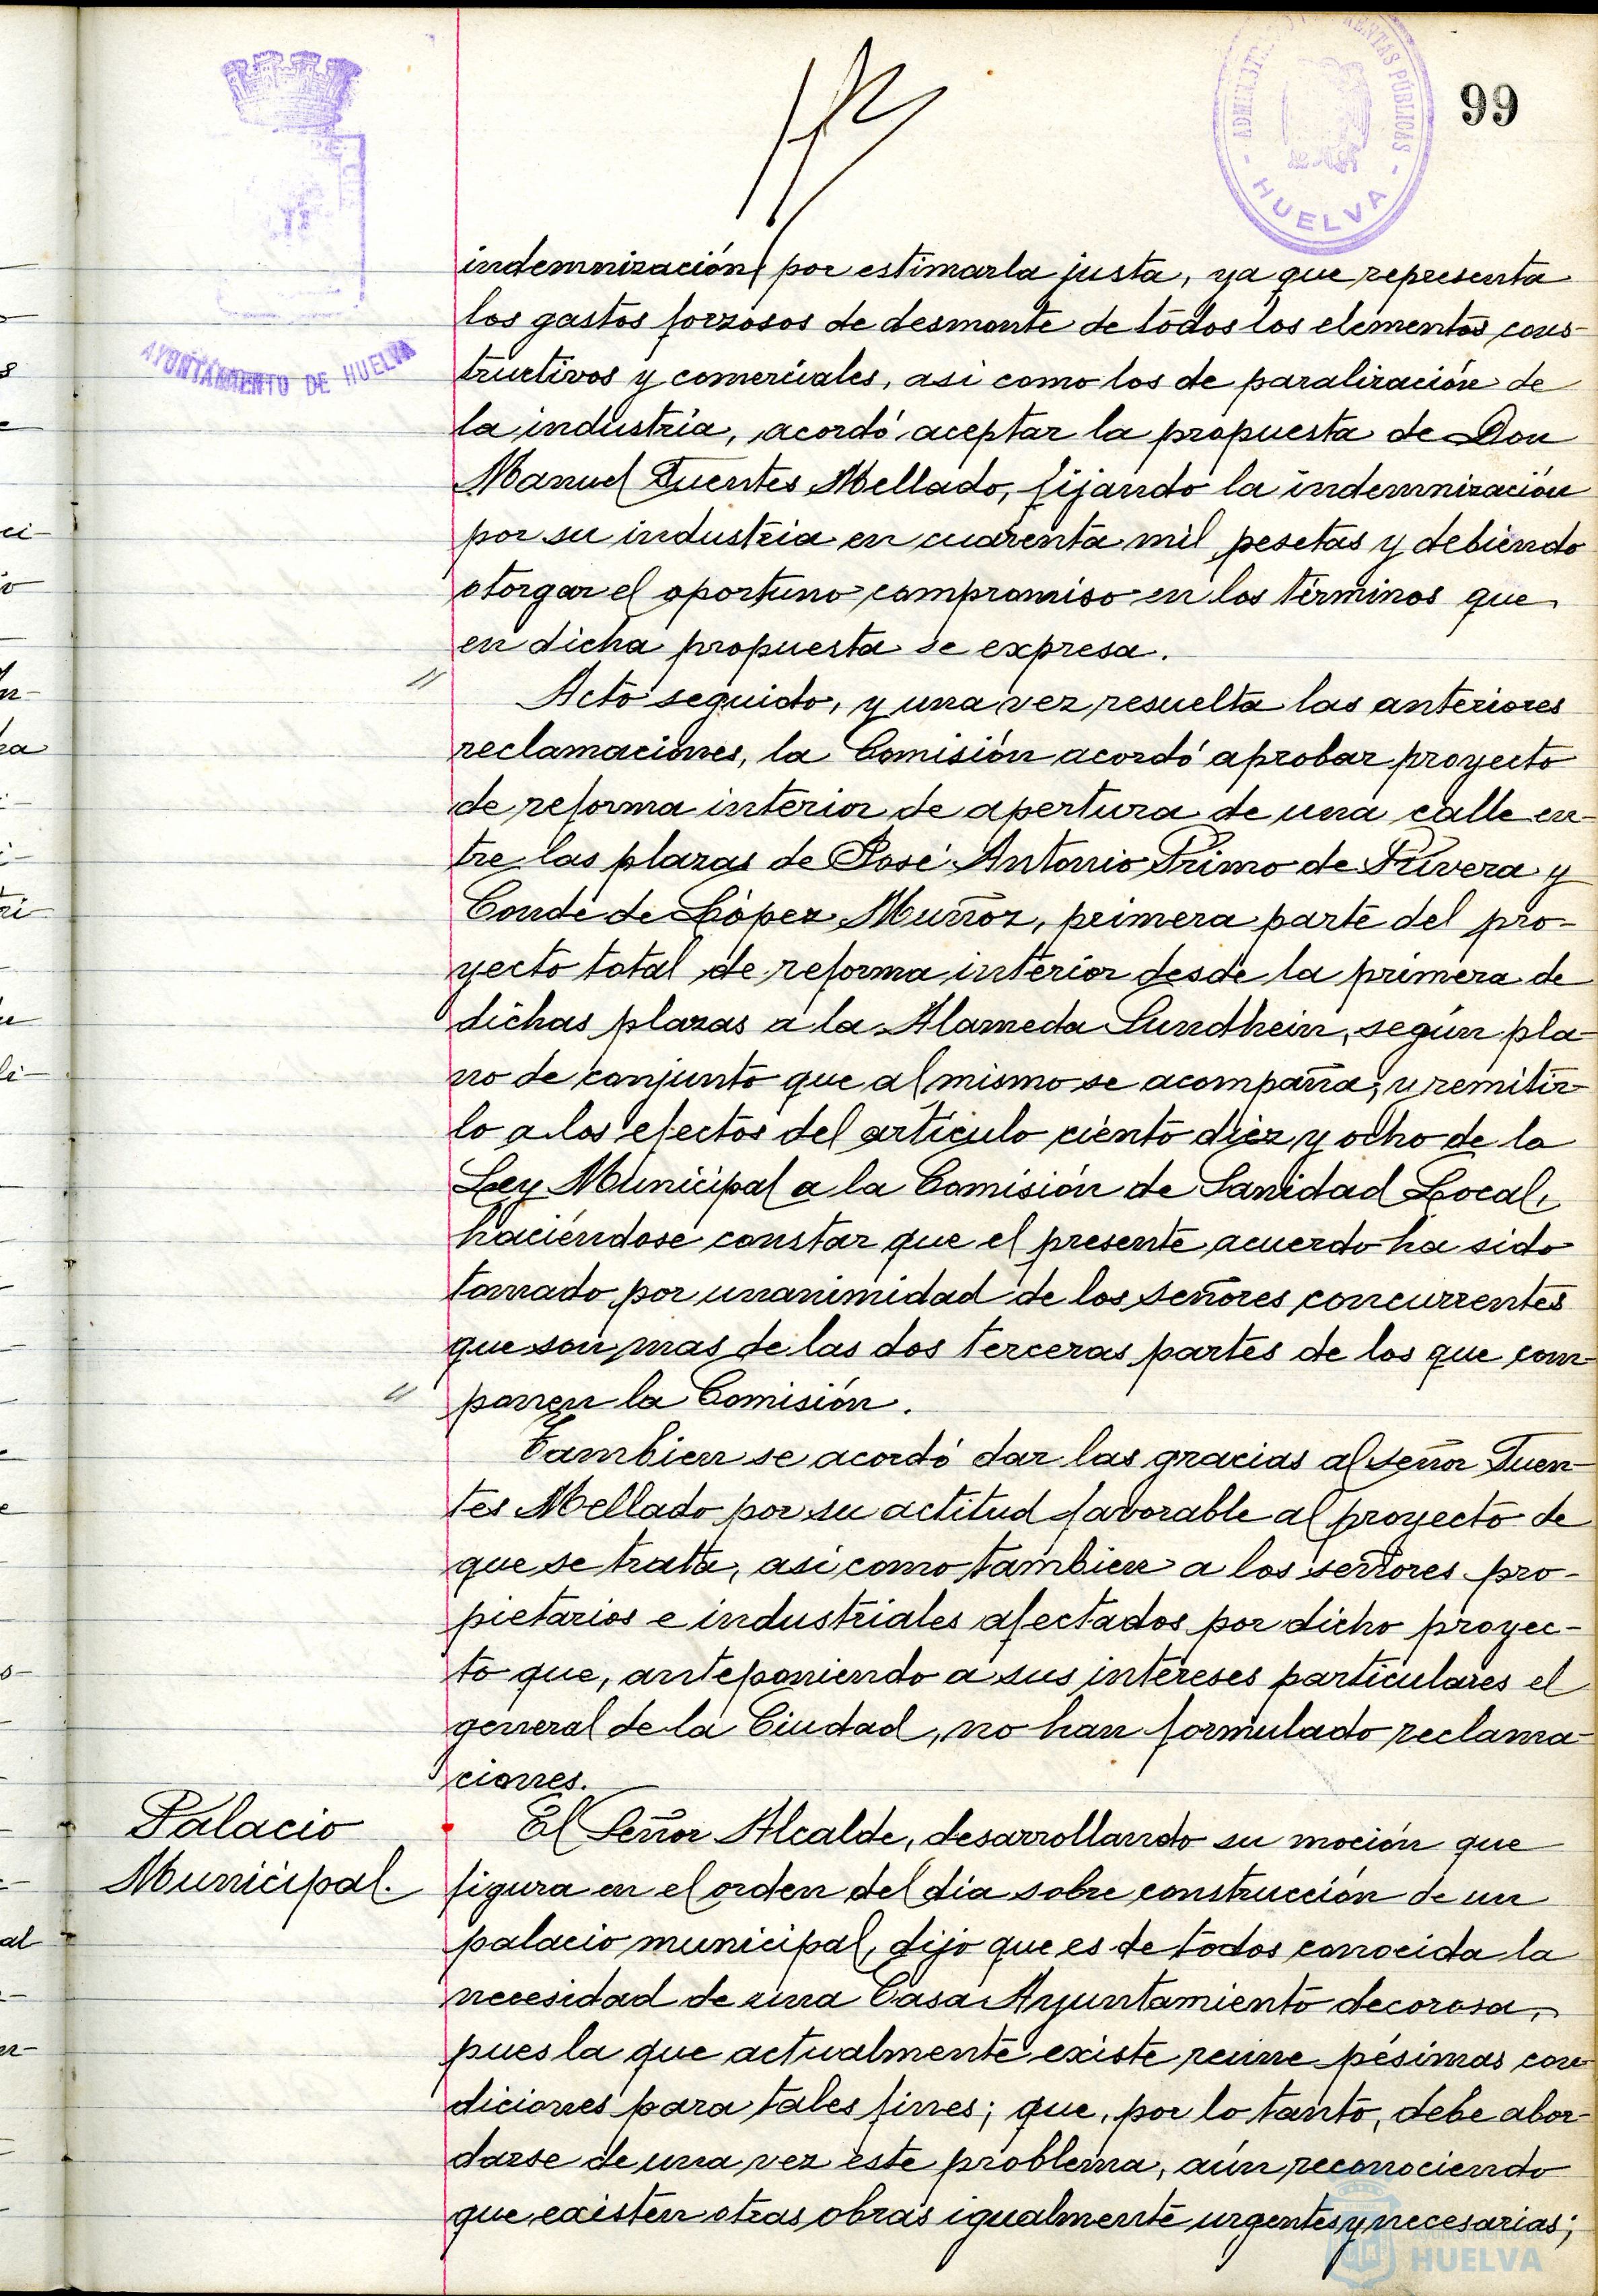 99
ADMINISTRACIÓN DE RENTAS PÚBLICAS
- HUELVA -
AYUNTAMIENTO DE HUELVA
indemnización, por estimarla justa, ya que representa
los gastos forzosos de desmonte de todos los elementos cons-
tructivos y comerciales, asi como los de paralización de
la industria, acordó aceptar la propuesta de Don
Manuel Fuentes Mellado, fijando la indemnización
por su industria en cuarenta mil pesetas y debiendo
otorgar el oportuno compromiso en los términos que
en dicha propuesta se expresa.
Acto seguido, y una vez resuelta las anteriores
reclamaciones, la Comisión acordó aprobar proyecto
de reforma interior de apertura de una calle en-
tre las plazas de José Antonio Primo de Rivera y
Conde de López Muñoz, primera parte del pro-
yecto total de reforma interior desde la primera de
dichas plazas a la Alameda Sundhein, según pla-
no de conjunto que al mismo se acompaña, y remitir-
lo a los efectos del artículo ciento diez y ocho de la
Ley Municipal a la Comisión de Sanidad Local,
haciéndose constar que el presente acuerdo ha sido
tomado por unanimidad de los señores concurrentes
que son mas de las dos terceras partes de los que com-
ponen la Comisión.
Tambien se acordó dar las gracias al señor Fuen-
tes Mellado por su actitud favorable al proyecto de
que se trata, asi como tambien a los señores pro-
pietarios e industriales afectados por dicho proyec-
to que, anteponiendo a sus intereses particulares el
general de la Ciudad, no han formulado reclama-
ciones.
Palacio
Municipal.
El Señor Alcalde, desarrollando su moción que
figura en el orden del dia sobre construcción de un
palacio municipal, dijo que es de todos conocida la
necesidad de una Casa Ayuntamiento decorosa,
pues la que actualmente existe reune pésimas con-
diciones para tales fines; que, por lo tanto, debe abor-
darse de una vez este problema, aún reconociendo
que existen otras obras igualmente urgentes y necesarias;
HUELVA